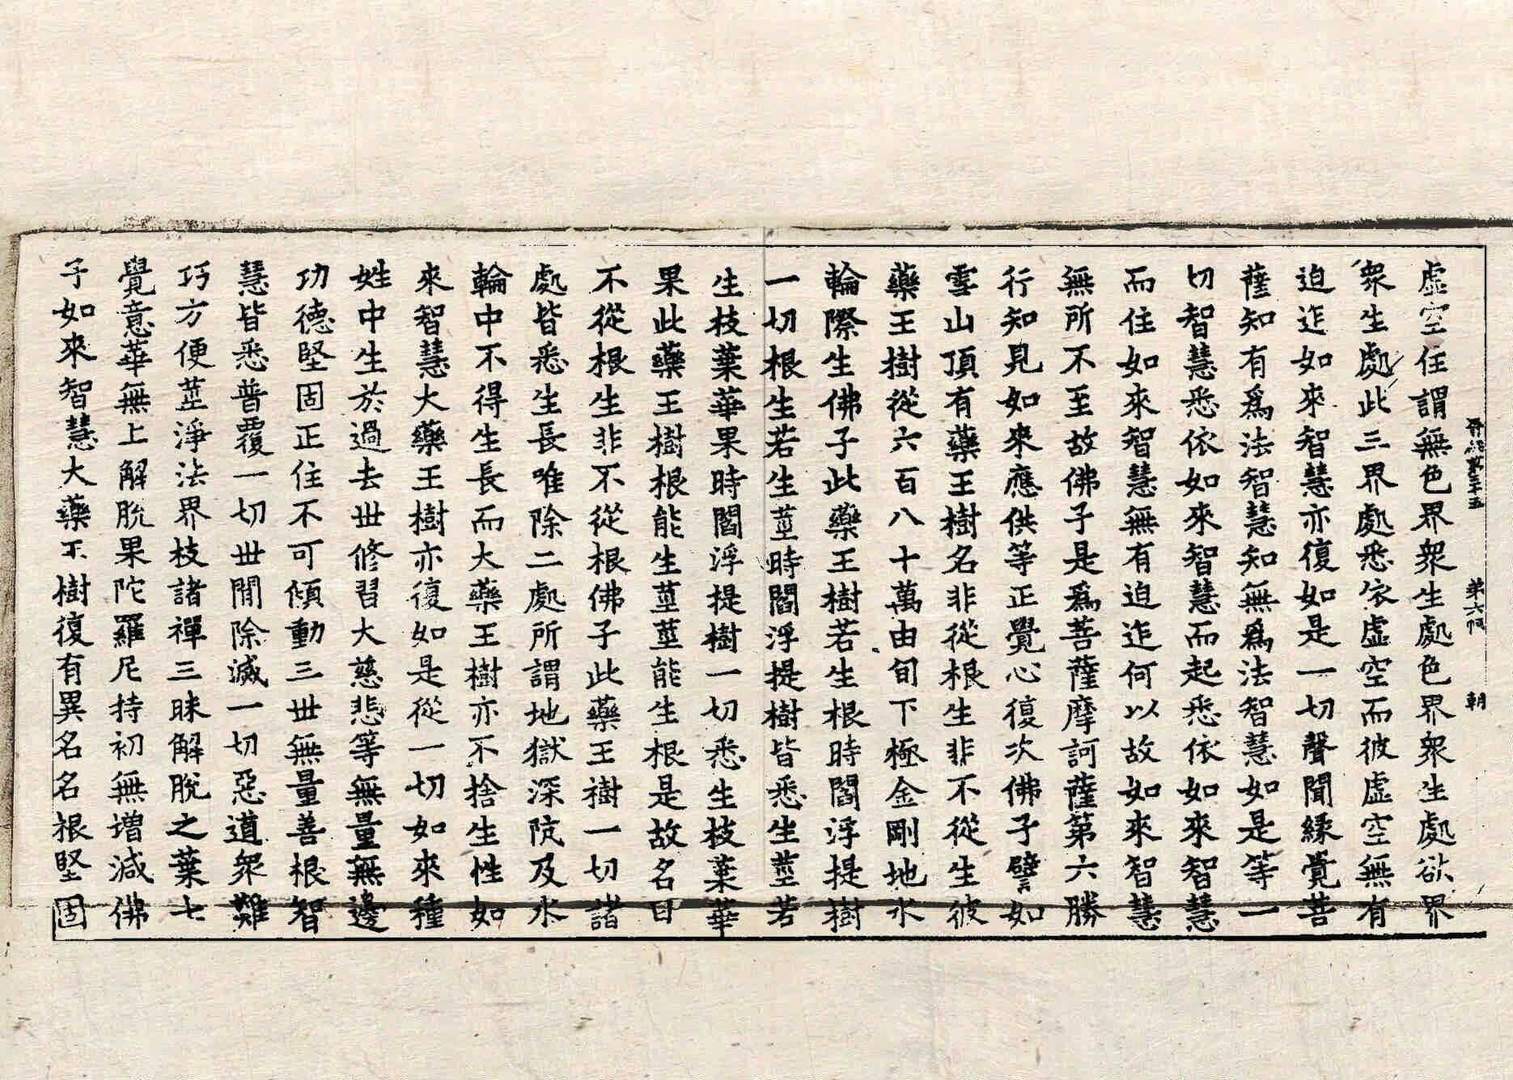 晉經第三十五 第六帋 朝
虛空住謂無色界衆生處色界衆生處欲界
衆生處此三界處悉依虛空而彼虛空無有
迫迮如來智慧亦復如是一切聲聞緣覺菩
薩知有爲法智慧知無爲法智慧如是等一
切智慧悉依如來智慧而起悉依如來智慧
而住如來智慧無有迫迮何以故如來智慧
無所不至故佛子是爲菩薩摩訶薩第六勝
行知見如來應供等正覺心復次佛子譬如
雪山頂有藥王樹名非從根生非不從生彼
藥王樹從六百八十萬由旬下極金剛地水
輪際生佛子此藥王樹若生根時閻浮提樹
一切根生若生莖時閻浮提樹皆悉生莖若
生枝葉華果時閻浮提樹一切悉生枝葉華
果此藥王樹根能生莖莖能生根是故名曰
不從根生非不從根佛子此藥王樹一切諸
處皆悉生長唯除二處所謂地獄深阬及水
輪中不得生長而大藥王樹亦不捨生性如
來智慧大藥王樹亦復如是從一切如來種
姓中生於過去世修習大慈悲等無量無邊
功德堅固正住不可傾動三世無量善根智
慧皆悉普覆一切世間除滅一切惡道衆難
巧方便莖淨法界枝諸禪三昧解脫之葉七
覺意華無上解脫果陀羅尼持初無增減佛
子如來智慧大藥王樹復有異名名根堅固